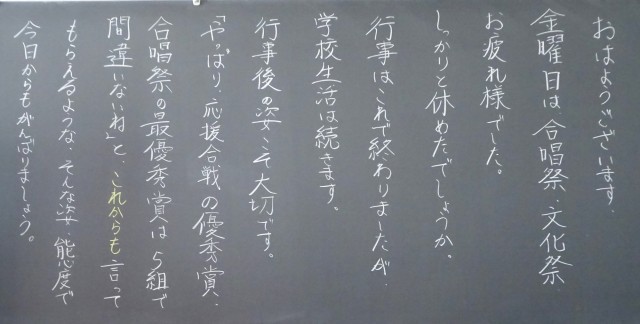 おはようございます。
金曜日は、合唱祭・文化祭
お疲れ様でした。
しっかりと休めたでしょうか。
行事はこれで終わりましたが、
学校生活は続きます。
行事後の姿こそ大切です。
「やっぱり、応援合戦の優秀賞、
合唱祭の最優秀賞は5組で
間違いないね」と、これからも言って
もらえるような、そんな姿・態度で
今日からもがんばりましょう。